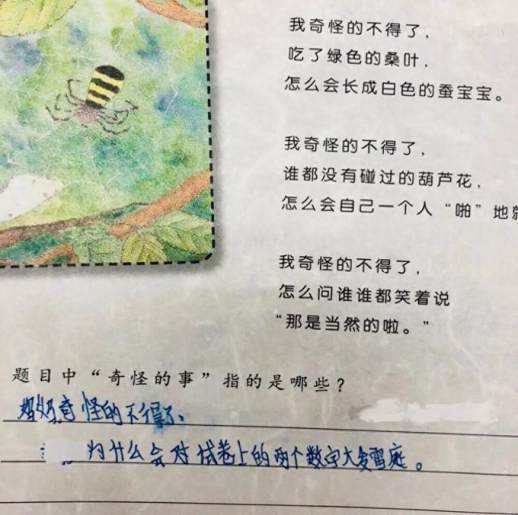 我奇怪的不得了，
吃了绿色的桑叶，
怎么会长成白色的蚕宝宝。
我奇怪的不得了，
谁都没有碰过的葫芦花，
怎么会自己一个人“啪”地
我奇怪的不得了，
怎么问谁谁都笑着说
“那是当然的啦。”
题目中“奇怪的事”指的是哪些？
奇怪的不得了，
为什么会对试卷上的两个数字大发雷庭。